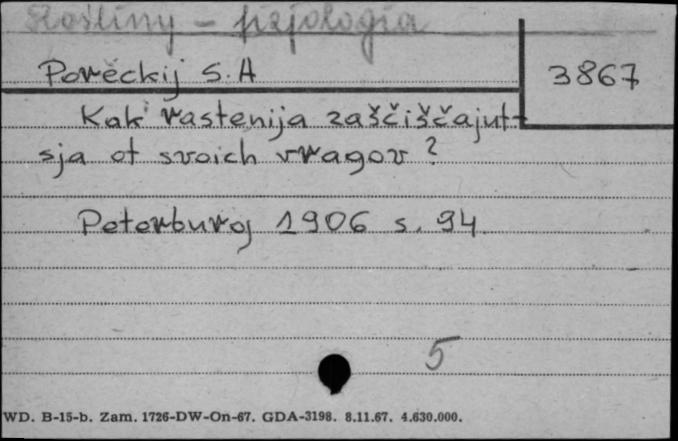 Rośliny - fizjologia
Porěckij S. A
3867
Kak rastenija zaščiščajut-
sja ot svoich vragov ?
Peterburg 1906 s. 94
5
WD. B-15-b. Zam. 1726-DW-On-67. GDA-3198. 8.11.67. 4.630.000.